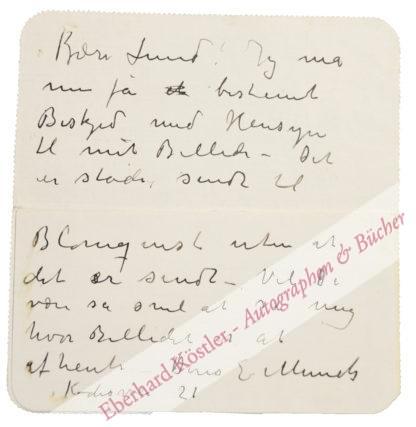 Kære Lund! Jeg må
nu få et bestemt
Beskjed med Hensyn
til mit Billede – Det
er stadi, sendt til
Blomquist uten at
det er sendt – Vil De
være så snil at mig
hvor Billedet er at
afhente – E Munch
21
Eberhard Köstler - Autographen & Bücher